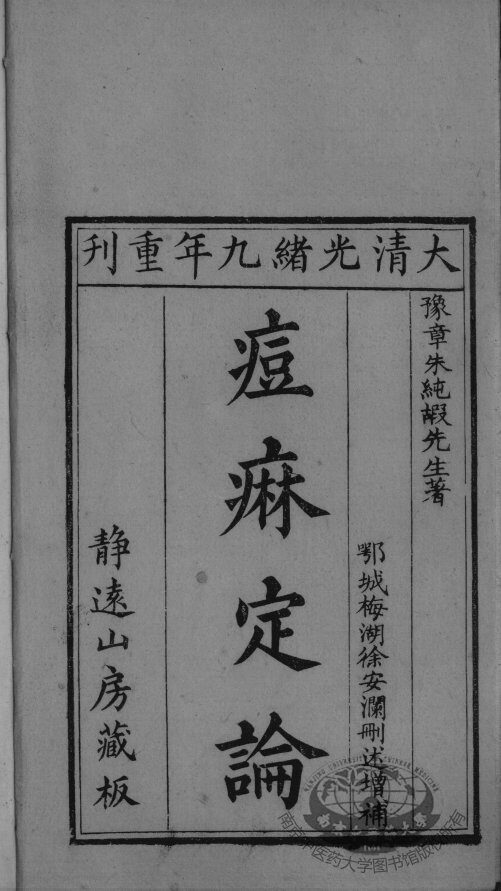 大清光緒九年重刊
豫章朱純嘏先生著
鄂城梅湖徐安瀾刪述增補
痘痳定論
静遠山房藏板
南京中医药大学图书馆版权所有